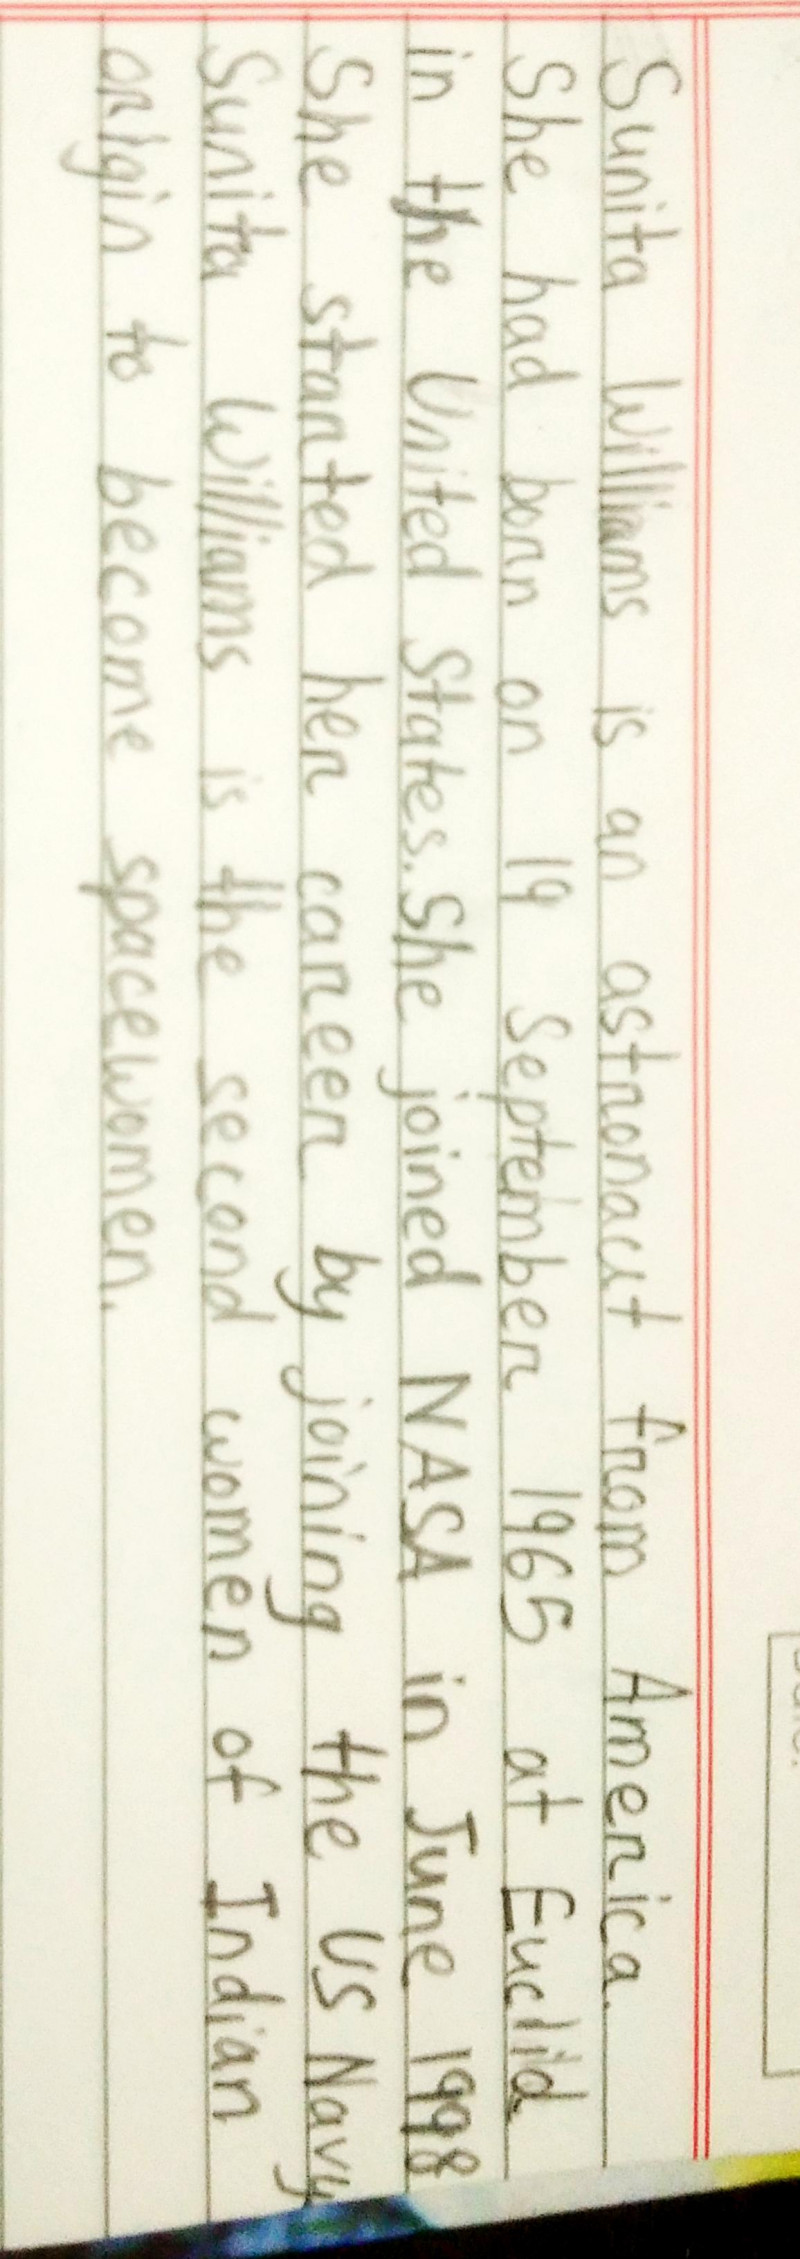 Sunita Williams is an astronacut from America.
She had born on 19 September 1965 at Euclid
in the United States. She joined NASA in June 1998
She started her career by joining the US Navy
Sunita Williams is the second women of Indian
origin to become spacewomen.